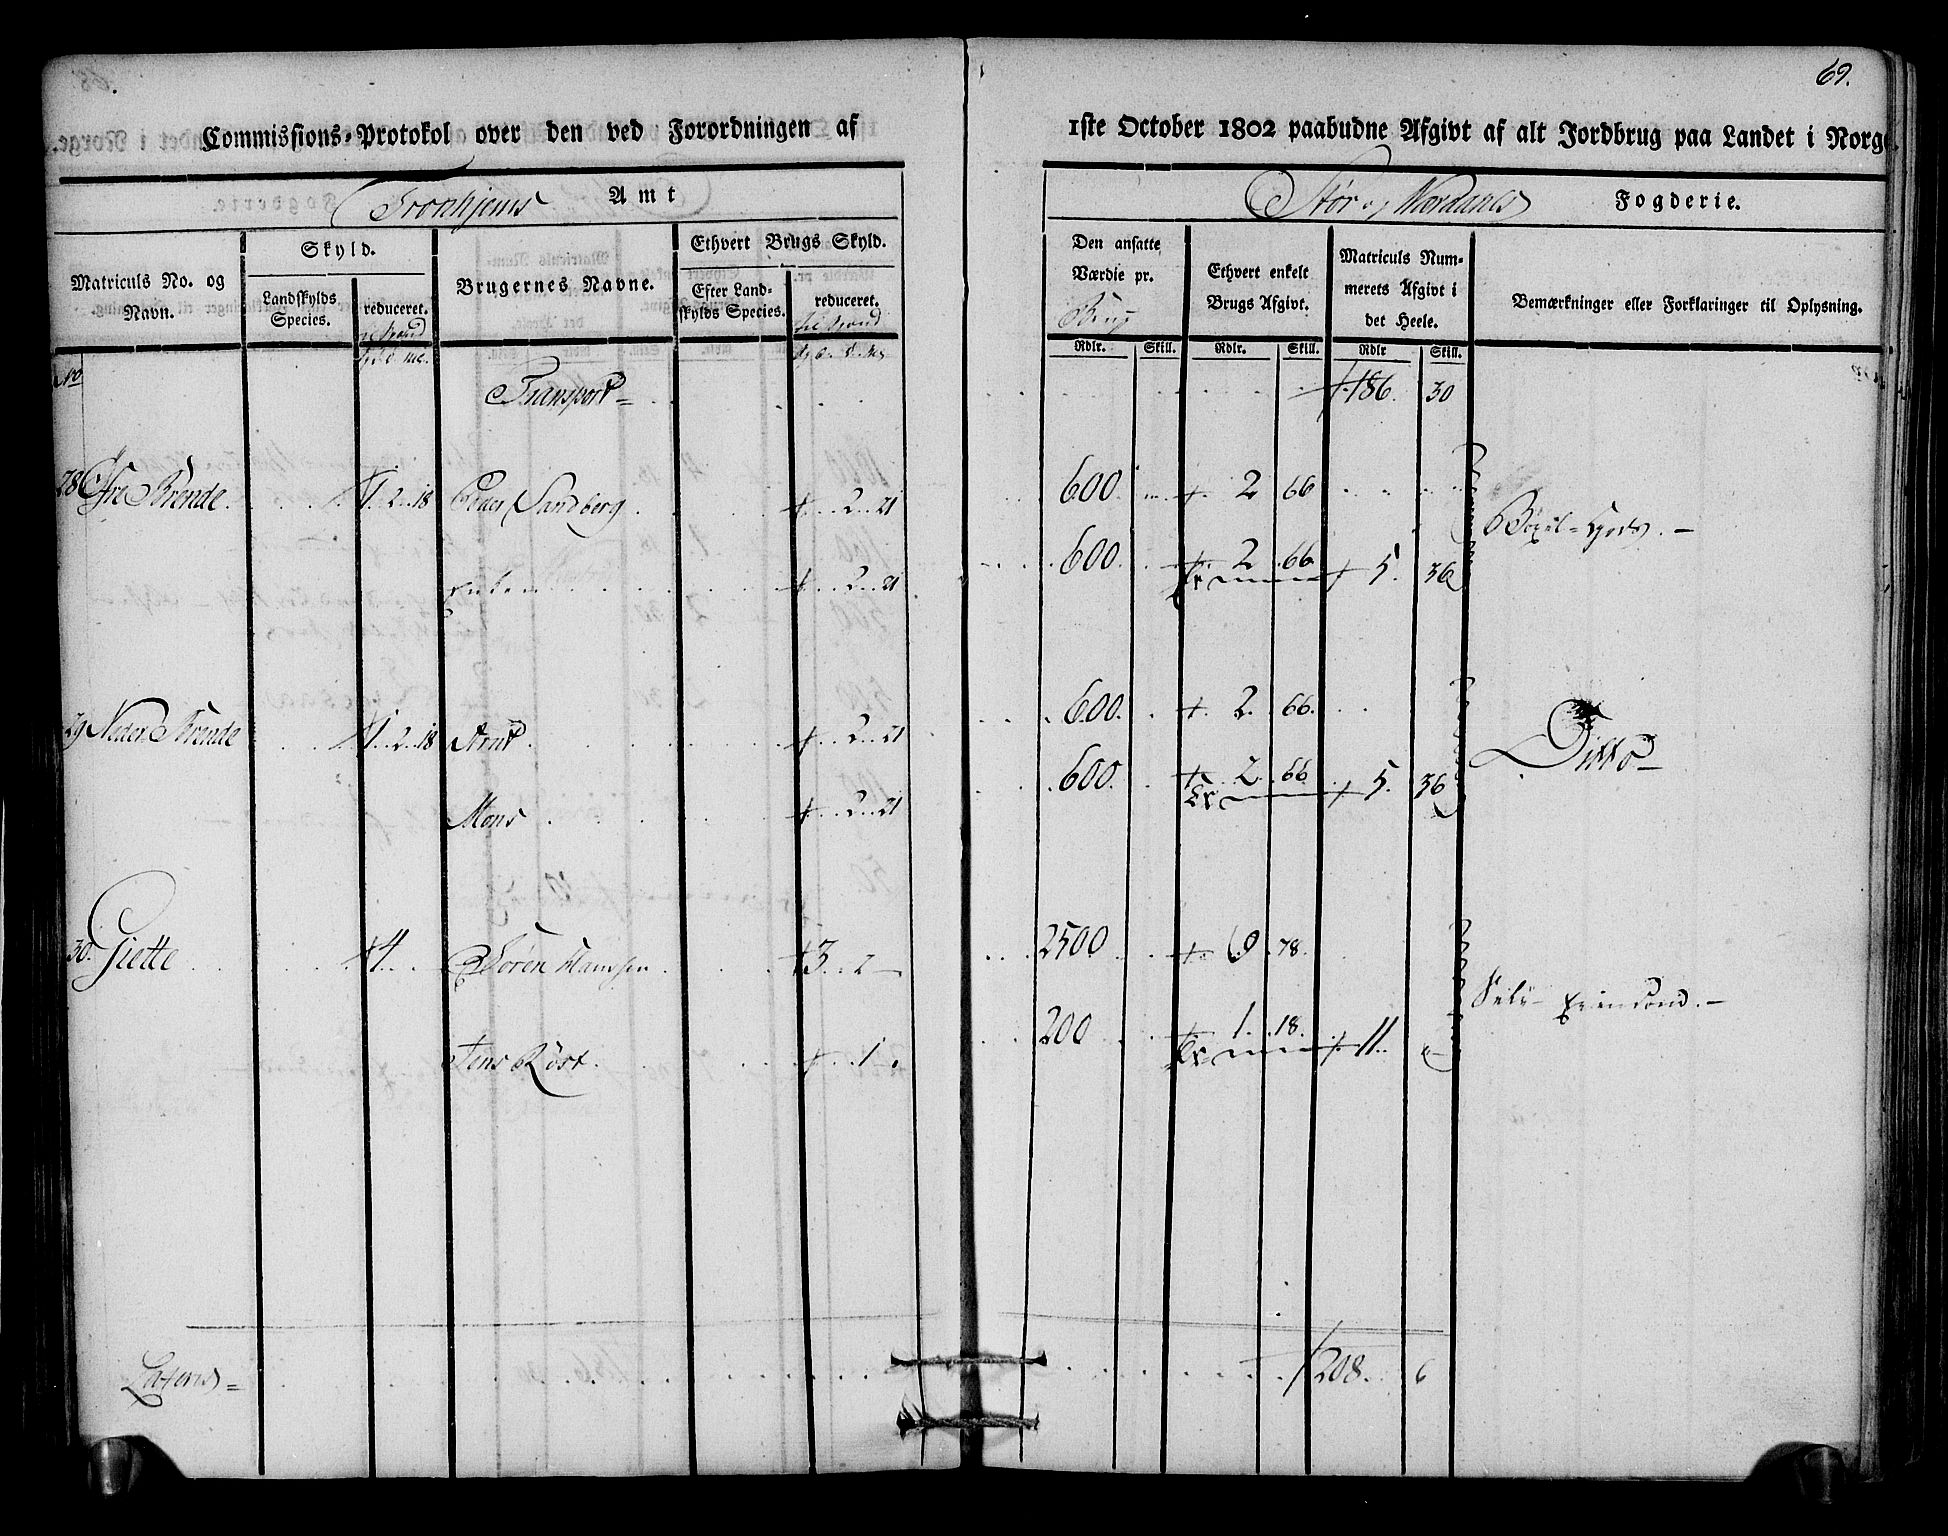 69.
Commissions-Protokol over den ved Forordningen af 1ste October 1802 paabudne Afgivt af alt Jordbrug paa Landet i Norge.
Tronhjems Amt
Stør og Værdahls Fogderie.
Matriculs No. og Navn.
Skyld.
Landskylds Species.
reduceret.
Brugernes Navne.
Ethvert Brugs Skyld.
Efter Landskylds Species.
reduceret.
til Spand
Den ansatte Værdie pr. Brug
Ethvert enkelt Brugs Afgivt.
Matriculs Nummerets Afgivt i det Heele.
Bemærkninger eller Forklaringer til Oplysning.
Rdlr. Skill. Rdlr. Skill. Rdlr Skill.
No
Transport = 186. 30
28 Øfre Brende 1. 2. 18 Peder Sandberg 2. 21 600. 2 66
Enken 2. 21 600. 2. 66 5. 36
Böxel-Gods.
29 Neder Brende 1. 2. 18 Arnt 2. 21 600. 2. 66.
Mons 2. 21 600. 2. 66. 5. 36
Ditto
30. Giette 4. Sören Hanssen 3. 2 2500 9. 78.
Jens Röst. 1. 200 1. 18. 11.
Selv-Eiendom.
Latens = 208. 6